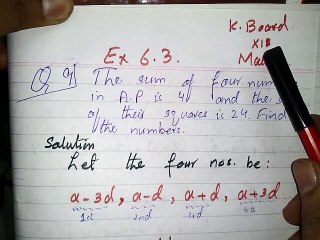 K. Board
XI
Ex 6.3.
Q 9
The sum of four num
in A.P is 4 and the s
of their squares is 24. Find
the numbers.
Solution
Let the four nos. be:
a-3d, a-d, a+d, a+3d
1st 2nd 3rd 4th